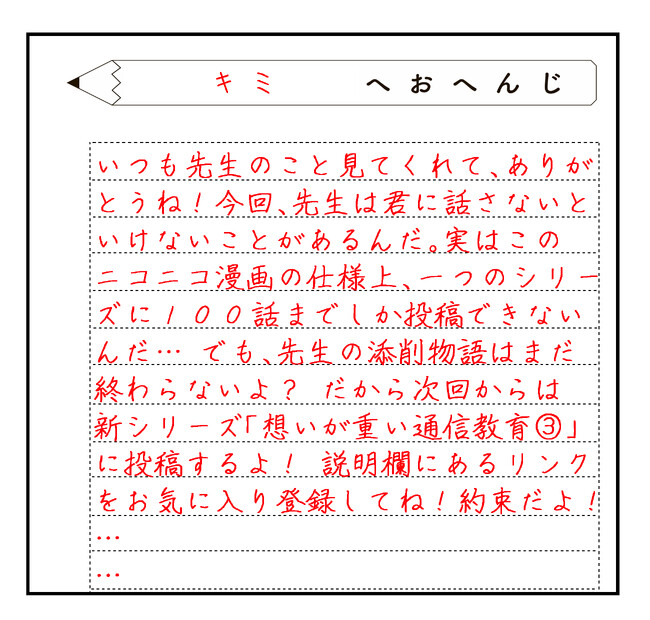 キミ へおへんじ
いつも先生のこと見てくれて、ありが
とうね！今回、先生は君に話さないと
いけないことがあるんだ。実はこの
ニコニコ漫画の仕様上、一つのシリー
ズに１００話までしか投稿できない
んだ… でも、先生の添削物語はまだ
終わらないよ？ だから次回からは
新シリーズ「想いが重い通信教育③」
に投稿するよ！ 説明欄にあるリンク
をお気に入り登録してね！約束だよ！
…
…